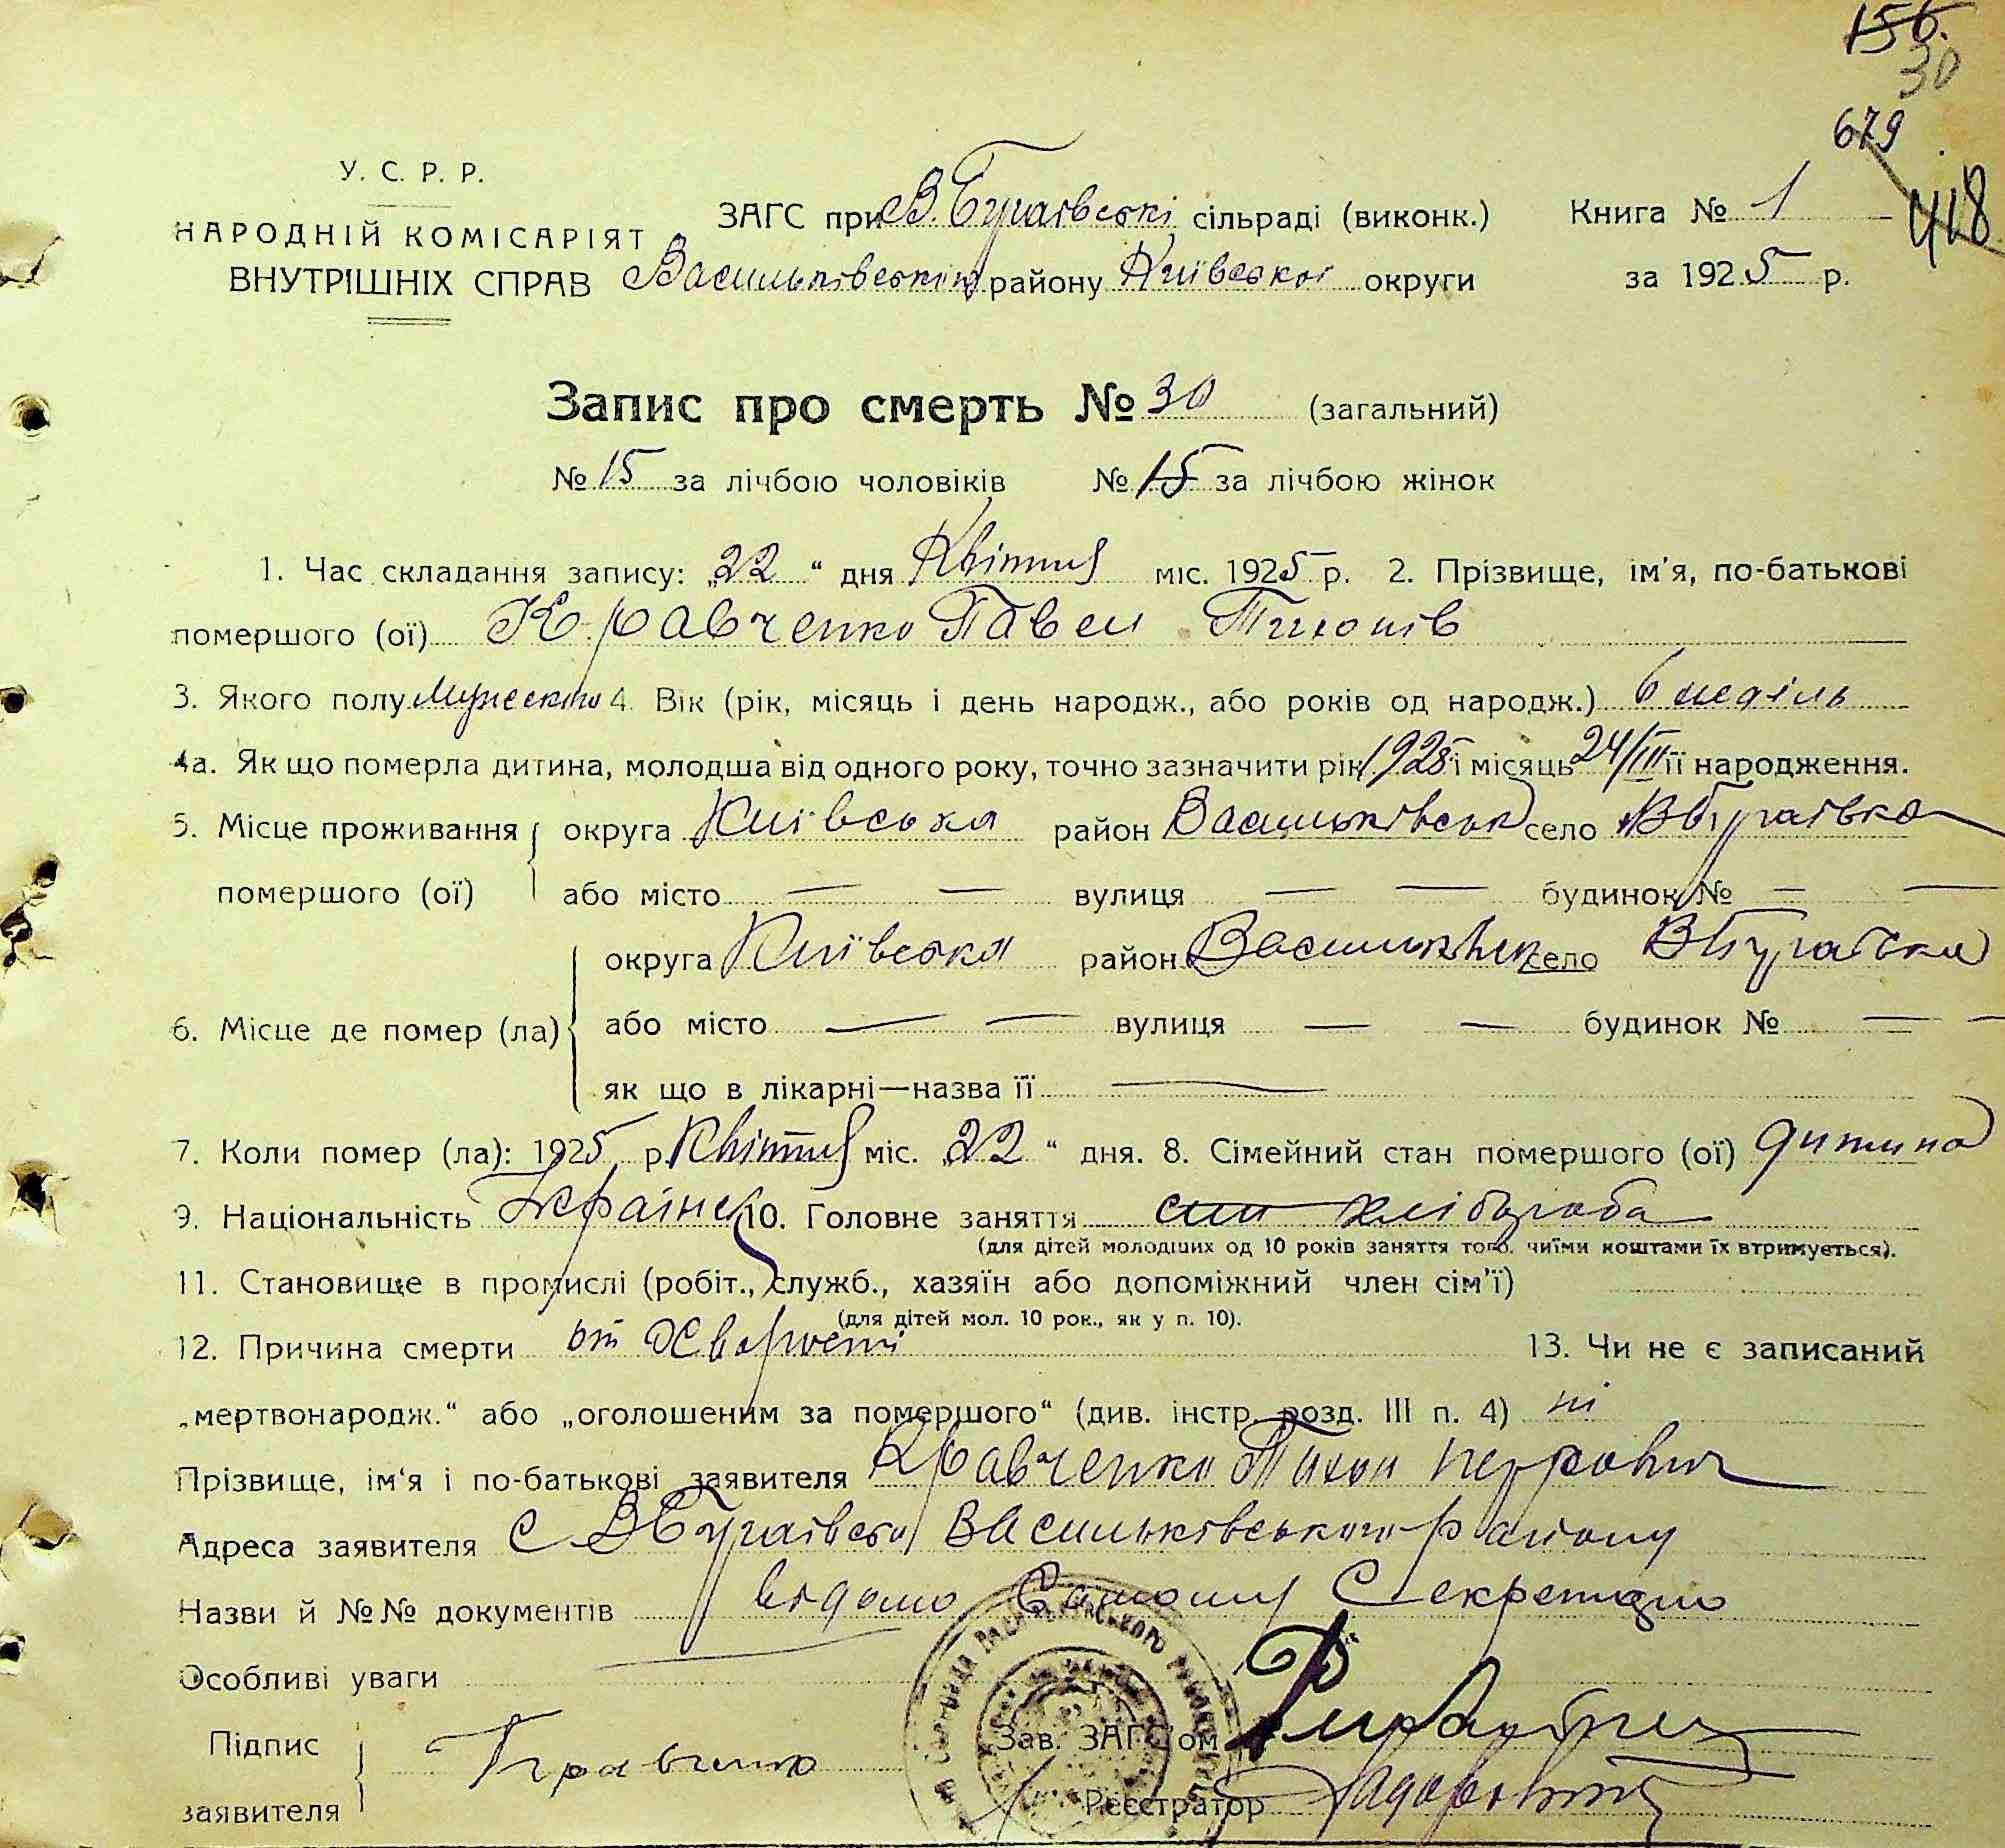 156.
30
679
418
У. С. Р. Р.
НАРОДНІЙ КОМІСАРІЯТ
ВНУТРІШНІХ СПРАВ
ЗАГС при В. Бугаївські сільраді (виконк.)
Васильківського району Київської округи
Книга № 1
за 1925 р.
Запис про смерть № 30 (загальний)
№ 15 за лічбою чоловіків № 15 за лічбою жінок
1. Час складання запису: „22“ дня Квітня міс. 1925 р. 2. Прізвище, ім'я, по-батькові
помершого (ої) Кравченко Павел Тихонів
3. Якого полу Мужеского 4. Вік (рік, місяць і день народж., або років од народж.) 6 неділь
4а. Як що померла дитина, молодша від одного року, точно зазначити рік 1925 і місяць 24/III її народження.
5. Місце проживання округа Київська район Васильківськ село ВБугаївка
помершого (ої) або місто — — вулиця — — будинок № — —
округа Київська район село ВБугаївка
6. Місце де помер (ла) або місто — — вулиця — — будинок № — —
як що в лікарні—назва її —
7. Коли помер (ла): 1925 р. Квітня міс. „22“ дня. 8. Сімейний стан помершого (ої) дитина
9. Національність Українець 10. Головне заняття син хлібороба
(для дітей молодіших од 10 років заняття того. чиїми коштами їх втримується).
11. Становище в промислі (робіт., служб., хазяїн або допоміжний член сім'ї)
(для дітей мол. 10 рок., як у п. 10).
12. Причина смерти от Хворости 13. Чи не є записаний
„мертвонародж.“ або „оголошеним за помершого“ (див. інстр. розд. III п. 4) ні
Прізвище, ім'я і по-батькові заявителя Кравченко Тихон Петрович
Адреса заявителя с ВБугаївка Васильківського Району
Назви й №№ документів відомо Самому Секретарю
Особливі уваги
Підпис заявителя Кравченко
Зав. ЗАГС'ом
Реєстратор